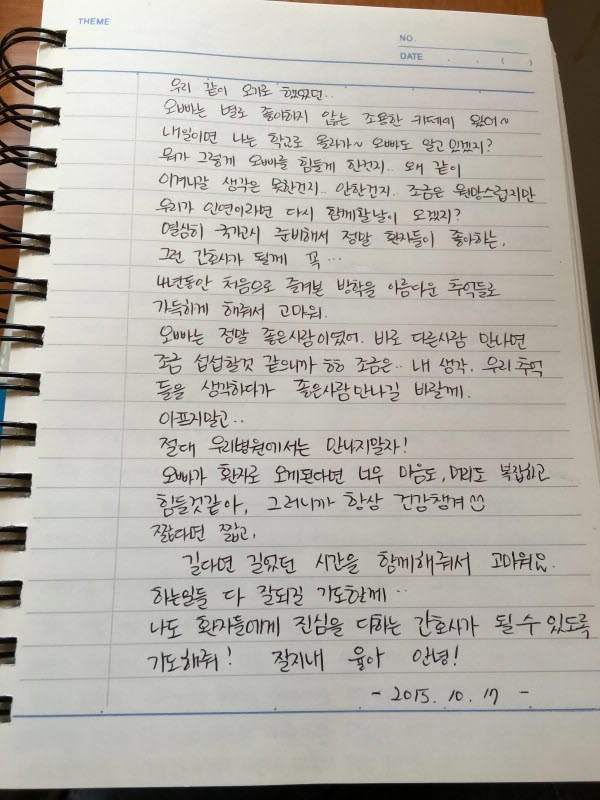 THEME
NO.
DATE . . ( )
우리 같이 오기로 했었던..
오빠는 별로 좋아하지 않는 조용한 카페에 왔어~
내일이면 나는 학교로 올라가~ 오빠도 알고 있겠지?
뭐가 그렇게 오빠를 힘들게 한건지.. 왜 같이
이겨나갈 생각은 못한건지.. 안한건지.. 조금은 원망스럽지만
우리가 인연이라면 다시 함께할날이 오겠지?
열심히 국가고시 준비해서 정말 환자들이 좋아하는,
그런 간호사가 될게 꼭...
4년동안 처음으로 즐겨본 방학을 아름다운 추억들로
가득하게 해줘서 고마워.
오빠는 정말 좋은사람이였어. 바로 다른사람 만나면
조금 섭섭할것 같으니까 ㅎㅎ 조금은.. 내 생각, 우리 추억
들을 생각하다가 좋은사람만나길 바랄게.
아프지말고..
절대 우리병원에서는 만나지말자!
오빠가 환자로 오게된다면 너무 마음도, 머리도 복잡하고
힘들것같아, 그러니까 항상 건강챙겨
짧다면 짧고,
길다면 길었던 시간을 함께해줘서 고마워요.
하는일들 다 잘되길 기도할게..
나도 환자들에게 진심을 다하는 간호사가 될 수 있도록
기도해줘! 잘지내 안녕!
- 2015. 10. 17 -